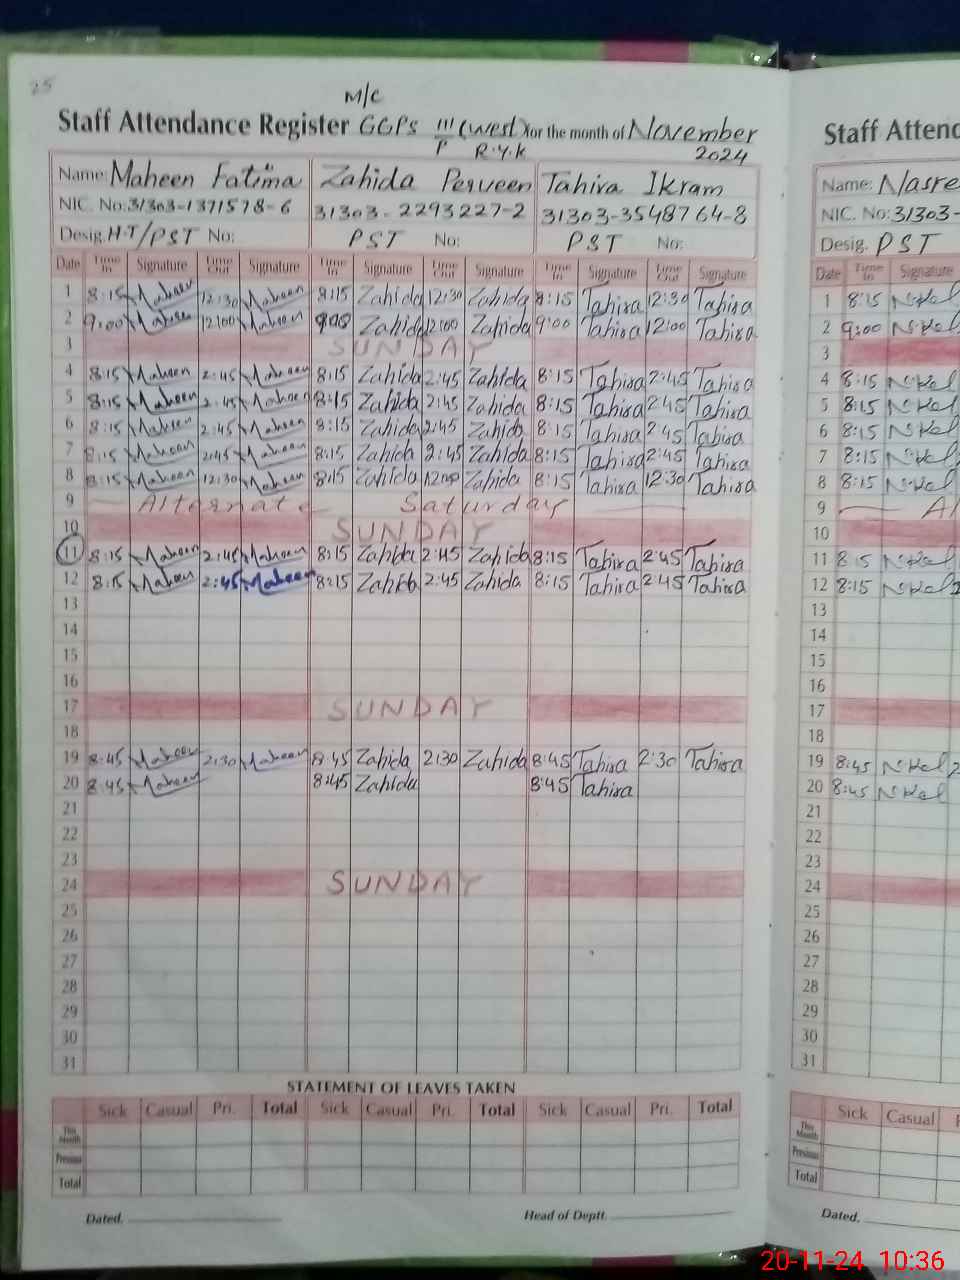 25
M/C
Staff Attendance Register GGPS III (West) for the month of November
P R.Y.K 2024
Name: Maheen Fatima Zahida Perveen Tahira Ikram
NIC. No: 31303-1371578-6 31303-2293227-2 31303-3548764-8
Desig. H.T/PST No: PST No: PST No:
Date Time In Signature Time Out Signature Time In Signature Time Out Signature Time In Signature Time Out Signature
1 8:15 Maheen 12:30 Maheen 8:15 Zahida 12:30 Zahida 8:15 Tahira 12:30 Tahira
2 9:00 Maheen 12:00 Maheen 9:00 Zahida 12:00 Zahida 9:00 Tahira 12:00 Tahira
3 SUNDAY
4 8:15 Maheen 2:45 Maheen 8:15 Zahida 2:45 Zahida 8:15 Tahira 2:45 Tahira
5 8:15 Maheen 2:45 Maheen 8:15 Zahida 2:45 Zahida 8:15 Tahira 2:45 Tahira
6 8:15 Maheen 2:45 Maheen 8:15 Zahida 2:45 Zahida 8:15 Tahira 2:45 Tahira
7 8:15 Maheen 2:45 Maheen 8:15 Zahida 2:45 Zahida 8:15 Tahira 2:45 Tahira
8 8:15 Maheen 12:30 Maheen 8:15 Zahida Zahida 8:15 Tahira 12:30 Tahira
9 Alternate Saturday
10 SUNDAY
11 8:15 Maheen 2:45 Maheen 8:15 Zahida 2:45 Zahida 8:15 Tahira 2:45 Tahira
12 8:15 Maheen 2:45 Maheen 8:15 Zahida 2:45 Zahida 8:15 Tahira 2:45 Tahira
13
14
15
16
17 SUNDAY
18
19 8:45 Maheen 2:30 Maheen 8:45 Zahida 2:30 Zahida 8:45 Tahira 2:30 Tahira
20 8:45 Maheen 8:45 Zahida 8:45 Tahira
21
22
23
24 SUNDAY
25
26
27
28
29
30
31
STATEMENT OF LEAVES TAKEN
Sick Casual Pri. Total Sick Casual Pri. Total Sick Casual Pri. Total
This Month
Previous
Total
Dated. Head of Deptt.
Staff Attend
Name: Nasre
NIC. No: 31303-
Desig. PST
Date Time In Signature
1 8:15
2 9:00
3
4 8:15
5 8:15
6 8:15
7 8:15
8 8:15
9 Al
10
11 8:15
12 8:15
13
14
15
16
17
18
19 8:45
20 8:45
21
22
23
24
25
26
27
28
29
30
31
Sick Casual
This Month
Previous
Total
Dated.
20-11-24 10:36